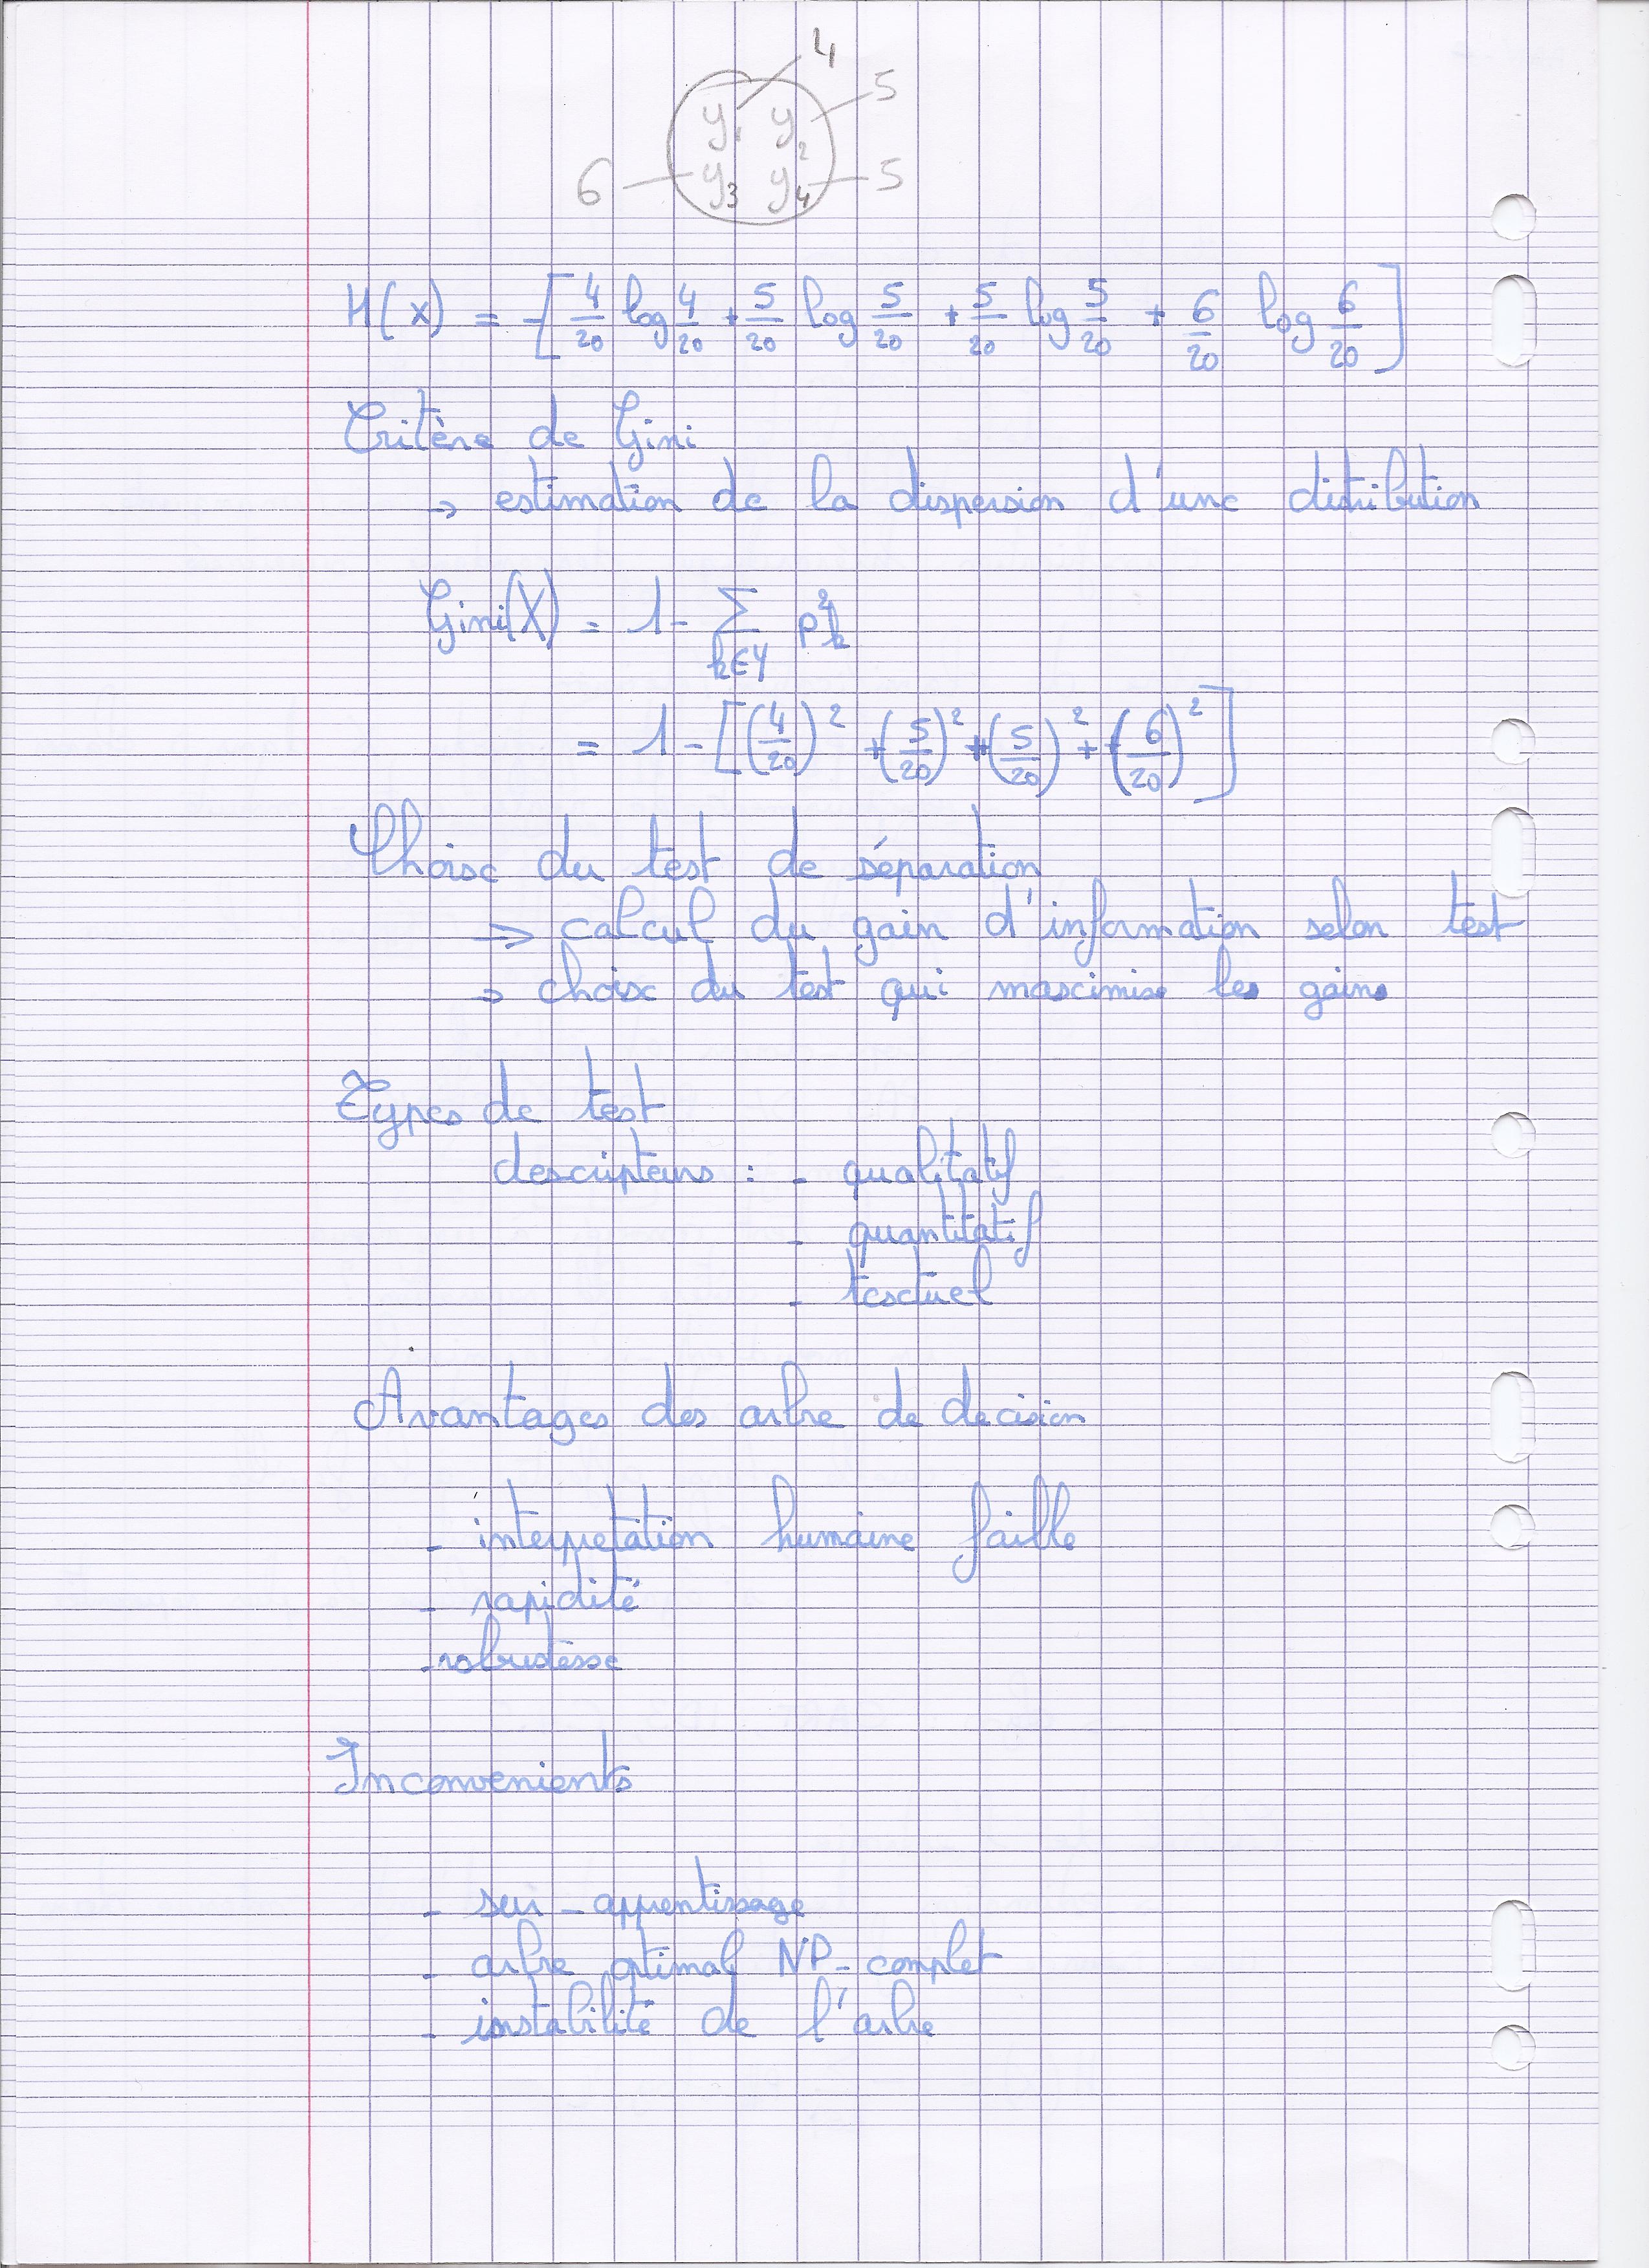 4
5
y1 y2
6 y3 y4 5
H(x) = -[4/20 log 4/20 + 5/20 log 5/20 + 5/20 log 5/20 + 6/20 log 6/20]
Critère de Gini
→ estimation de la dispersion d'une distribution
Gini(X) = 1 - Σ p²k
k∈Y
= 1 - [(4/20)² + (5/20)² + (5/20)² + (6/20)²]
Choix du test de séparation
⇒ calcul du gain d'information selon test
→ choix du test qui maximise les gains
Types de test
descripteurs : - qualitatif
- quantitatif
- textuel
Avantages des arbre de decision
- interpretation humaine faible
- rapidité
- robustesse
Inconvenients
- sur-apprentissage
- arbre optimal NP-complet
- instabilité de l'arbre